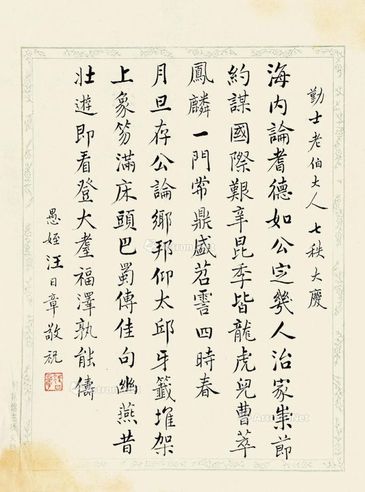 勤士老伯大人七秩大慶
海内論耆德如公定幾人治家崇節
約謀國際艱辛昆季皆龍虎兒曹萃
鳳麟一門常鼎盛苕霅四時春
月旦存公論鄉邦仰太邱牙籤堆架
上象笏滿床頭巴蜀傳佳句幽燕昔
壯遊即看登大耋福澤孰能儔
愚姪汪日章敬祝